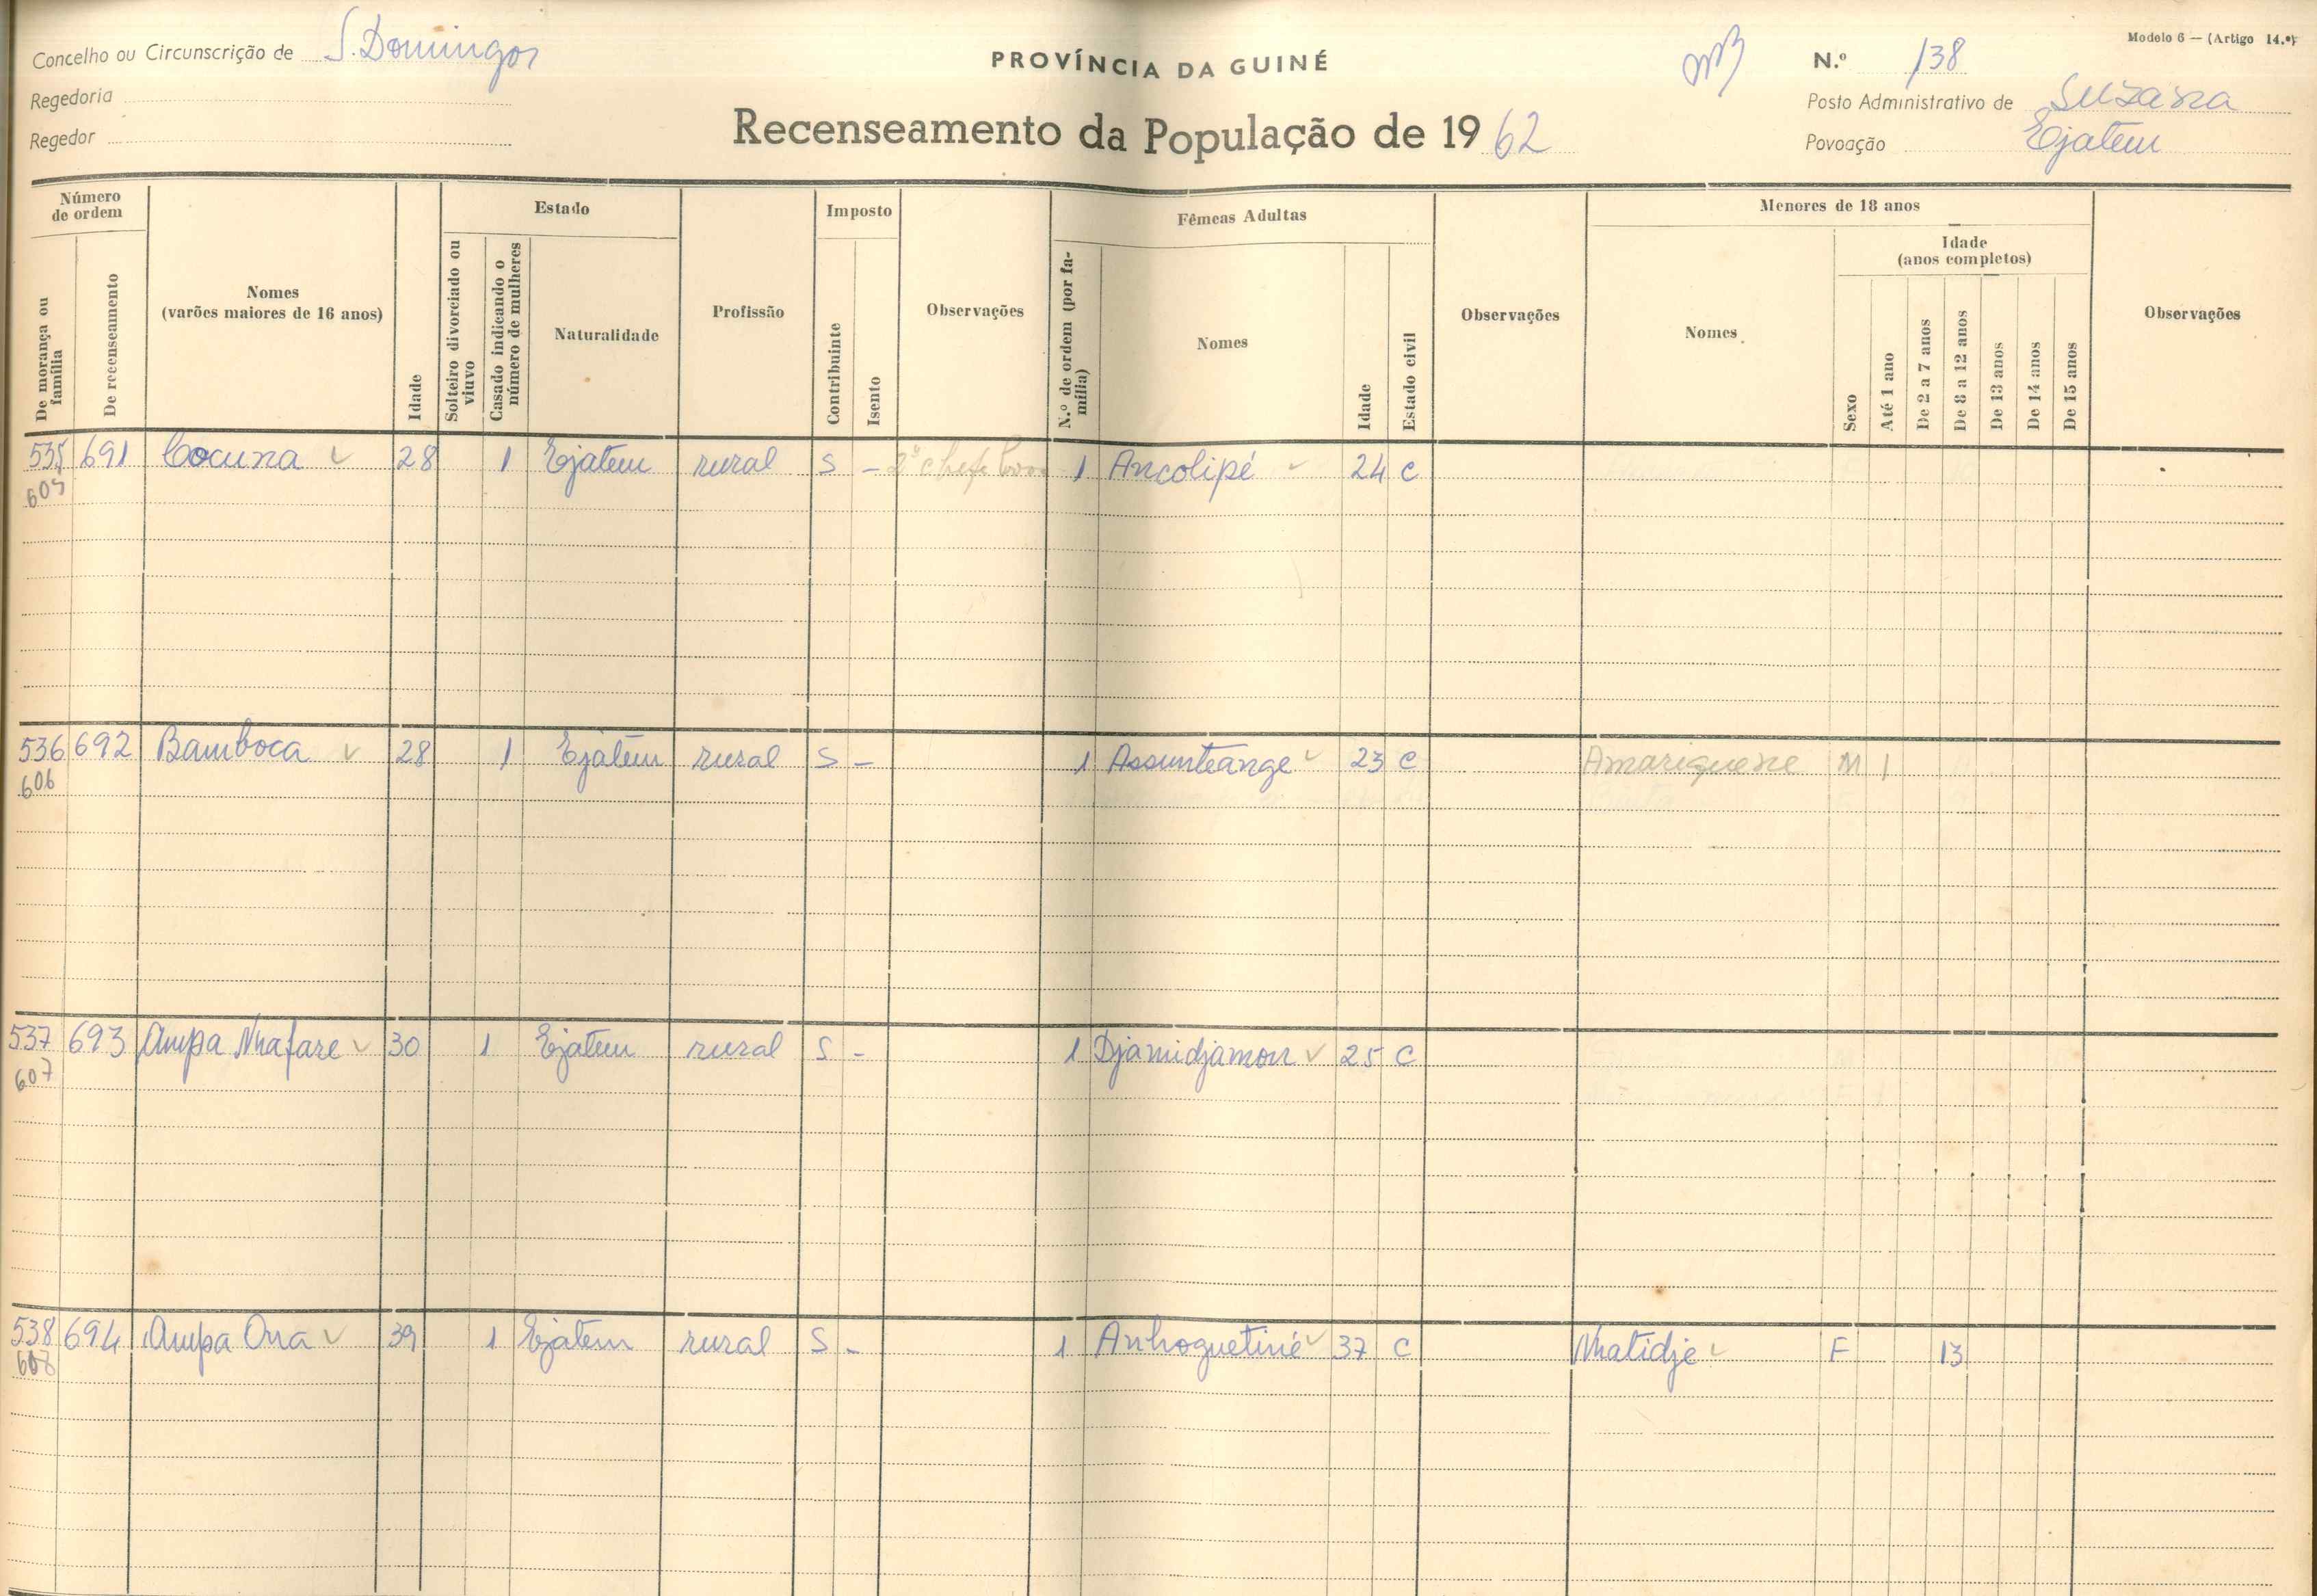 Concelho ou Circunscrição de S. Domingos
Regedoria
Regedor
PROVÍNCIA DA GUINÉ
Recenseamento da População de 19 62
Modelo 6 — (Artigo 14.º)
N.º 138
Posto Administrativo de Suzana
Povoação Ejatem
Número de ordem
De morança ou família
De recenseamento
Nomes
(varões maiores de 16 anos)
Idade
Estado
Solteiro divorciado ou viuvo
Casado indicando o número de mulheres
Naturalidade
Profissão
Imposto
Contribuinte
Isento
Observações
Fêmeas Adultas
N.º de ordem (por família)
Nomes
Idade
Estado civil
Observações
Menores de 18 anos
Nomes
Sexo
Idade
(anos completos)
Até 1 ano
De 2 a 7 anos
De 8 a 12 anos
De 13 anos
De 14 anos
De 15 anos
Observações
535 691 Cocuna 28 1 Ejatem rural S - 2º chefe 1 Ancolipé 24 C
605
536 692 Bamboca 28 1 Ejatem rural S - 1 Assunteange 23 C Amariquene M 1
606
537 693 Ampa Nhafare 30 1 Ejatem rural S - 1 Djamidjamon 25 C
607
538 694 Ampa Ona 39 1 Ejatem rural S - 1 Anhoquetiné 37 C Nhatidje F 13
608